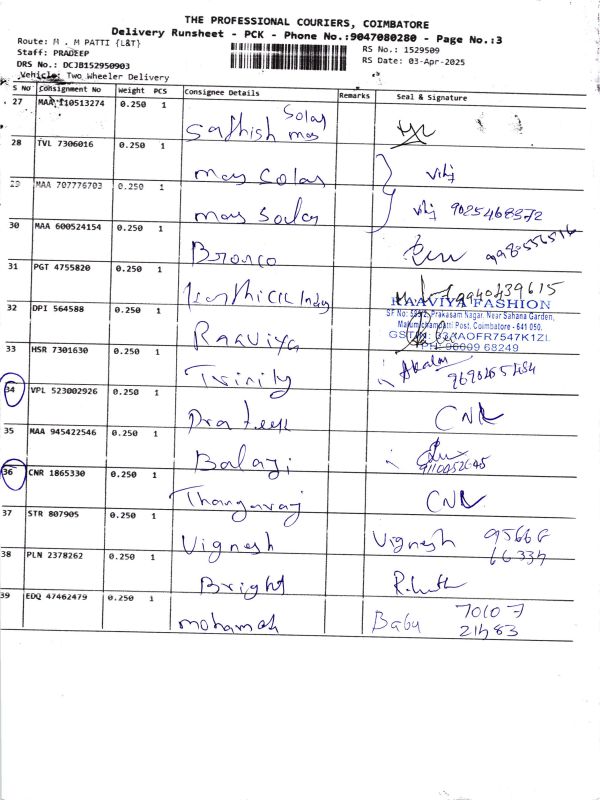 THE PROFESSIONAL COURIERS, COIMBATORE
Delivery Runsheet - PCK - Phone No.:9047080280 - Page No.:3
Route: M . M PATTI {L&T}
RS No.: 1529509
Staff: PRADEEP
RS Date: 03-Apr-2025
DRS No.: DCJB152950903
Vehicle: Two Wheeler Delivery
S No Consignment No Weight PCS Consignee Details Remarks Seal & Signature
27 MAA 110513274 0.250 1 Sathish mas Solar
28 TVL 7306016 0.250 1 mas Solar Vihj
29 MAA 707776703 0.250 1 mas Solar Vihj 9025468372
30 MAA 600524154 0.250 1 Bronco
31 PGT 4755820 0.250 1 Karthick Indus 9940439615
32 DPI 564588 0.250 1 Raaviya
RAAVIYA FASHION
Prakasam Nagar, Near Sahana Garden,
Post, Coimbatore - 641 050.
33 HSR 7301630 0.250 1 Trinity Akalan
34 VPL 523002926 0.250 1 Prateek CNR
35 MAA 945422546 0.250 1 Balaji
36 CNR 1865330 0.250 1 Thangaraj CNR
37 STR 807905 0.250 1 Vignesh Vignesh 95666
66334
38 PLN 2378262 0.250 1 Bright
39 EDQ 47462479 0.250 1 mohamad Babu 70107
21483